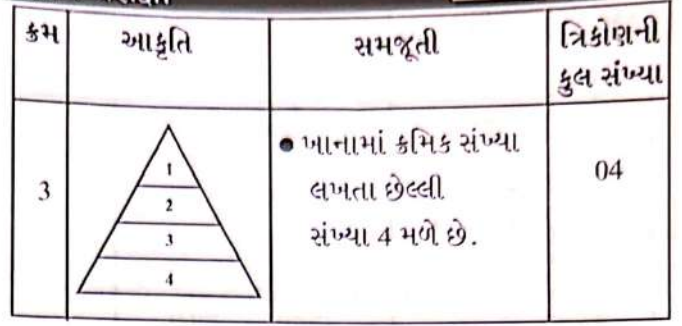 ક્રમ
આકૃતિ
સમજૂતી
ત્રિકોણની
કુલ સંખ્યા
3
1
2
3
4
● ખાનામાં ક્રમિક સંખ્યા
લખતા છેલ્લી
સંખ્યા 4 મળે છે.
04